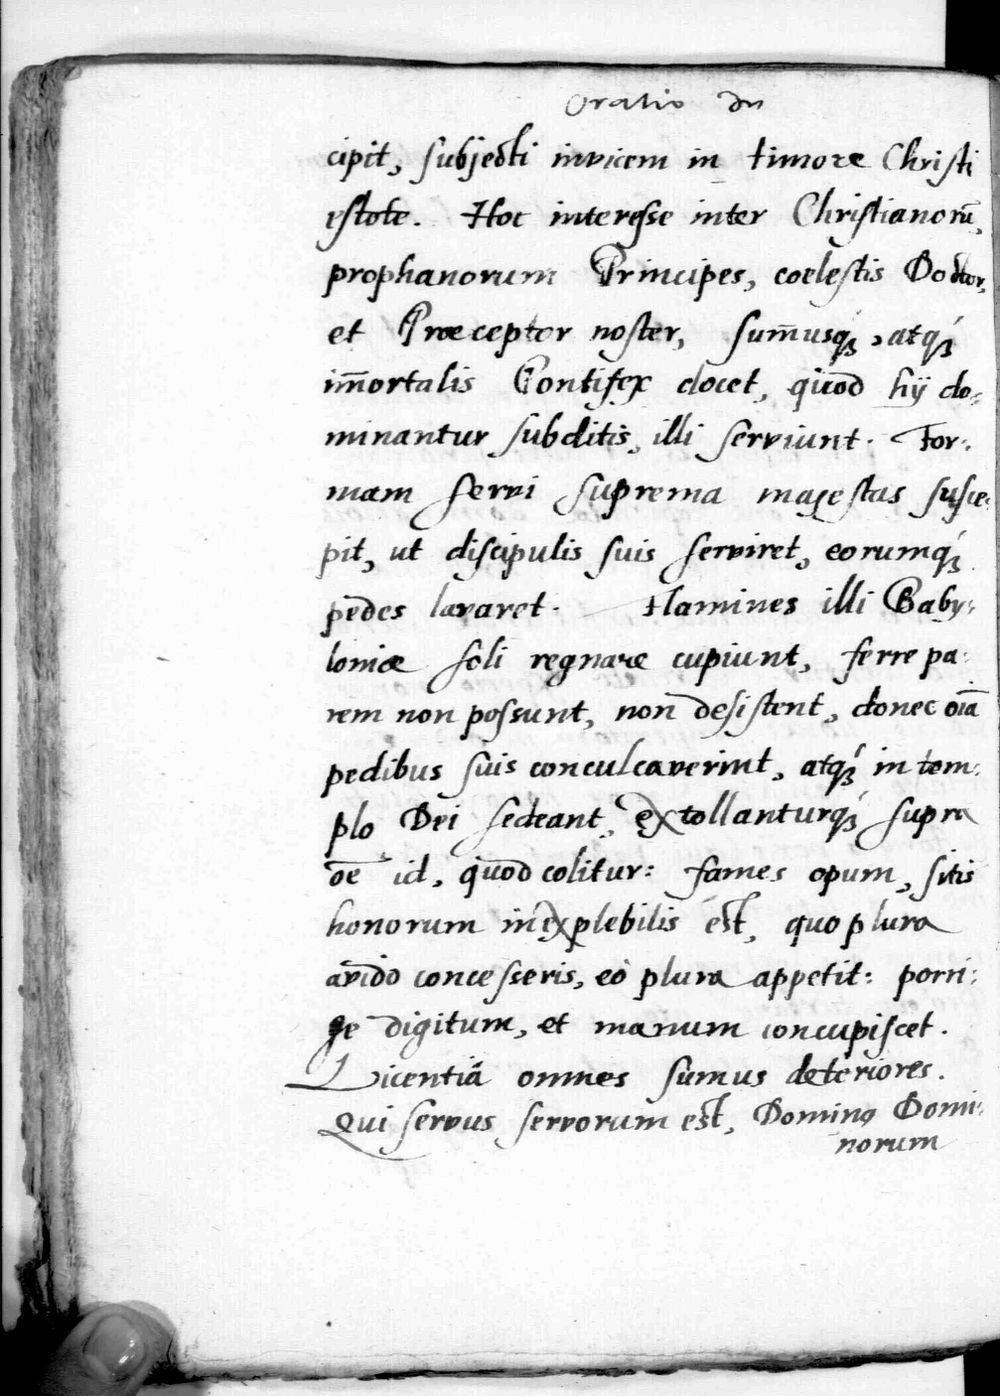 Oratio dn
cipit, subjecti invicem in timore Christi
estote. Hoc interesse inter Christianorū,
prophanorum Principes, coelestis Doctor,
et Præceptor noster, sum̄usq́ꝫ, atq́ꝫ
im̄ortalis Pontifex docet, quod hij do-
minantur subditis, illi serviunt. For-
mam servi suprema majestas susce-
pit, ut discipulis suis serviret, eorumq́ꝫ
pedes lavaret. Flamines illi Baby-
loniæ soli regnare cupiunt, ferre pa-
rem non possunt, non desistent, donec oīa
pedibus suis conculcaverint, atq́ꝫ in tem-
plo Dei sedeant, extollanturq́ꝫ supra
oē id, quod colitur: fames opum, sitis
honorum inexplebilis est, quo plura
avido concesseris, eò plura appetit: porri-
ge digitum, et manum concupiscet.
Licentiâ omnes sumus deteriores.
Qui servus servorum est, Dominꝰ Domi-
norum